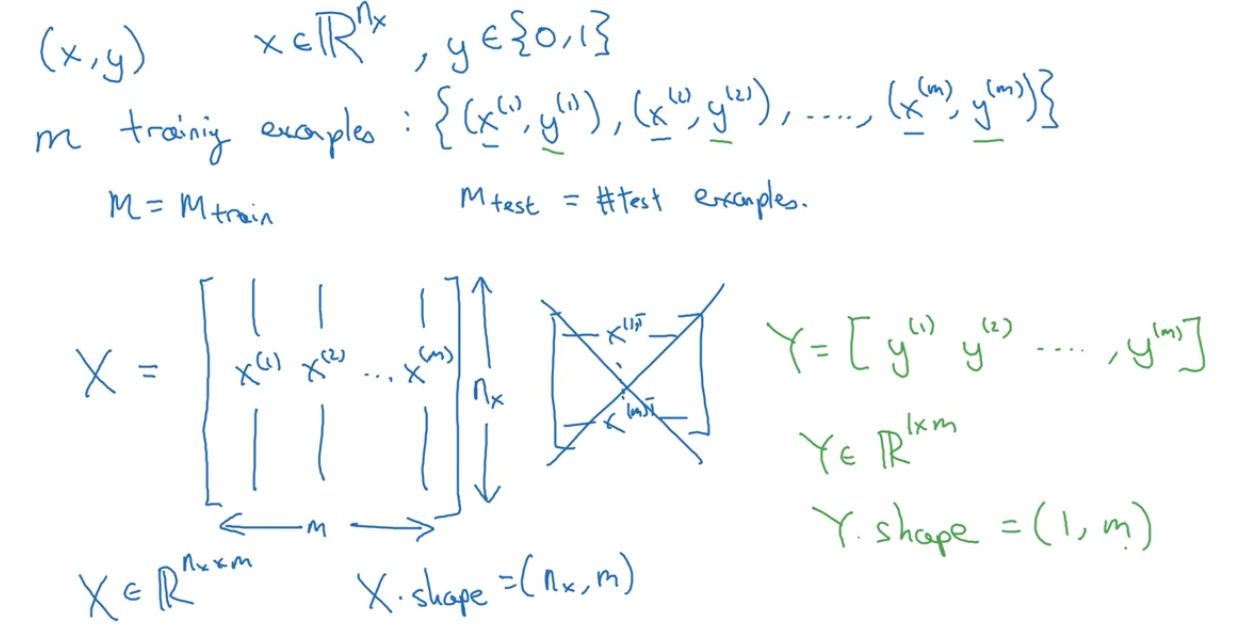 (x, y) x ∈ ℝ^{n_x}, y ∈ {0, 1}
m trainiy examples : {(x^{(1)}, y^{(1)}), (x^{(2)}, y^{(2)}), ...., (x^{(m)}, y^{(m)})}
M = M_{train} M_{test} = #test examples.
X = [ x^{(1)} x^{(2)} ... x^{(m)} ] n_x
m
x^{(1)T}
x^{(m)T}
X ∈ ℝ^{n_x × m} X.shape = (n_x, m)
Y = [ y^{(1)} y^{(2)} ...., y^{(m)} ]
Y ∈ ℝ^{1×m}
Y.shape = (1, m)